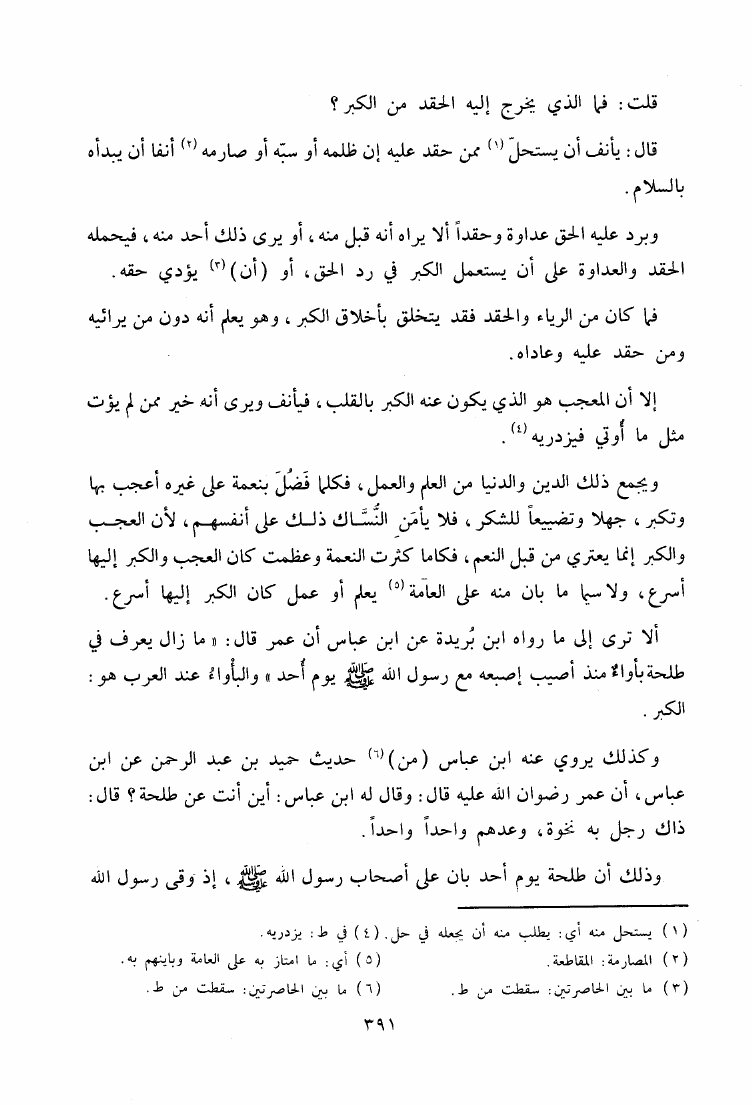 قلت: فما الذي يخرج إليه الحقد من الكبر؟
قال: يأنف أن يستحلّ(١) ممن حقد عليه إن ظلمه أو سبّه أو صارمه(٢) أنفا أن يبدأه
بالسلام.
ويرد عليه الحق عداوة وحقداً ألا يراه أنه قبل منه، أو يرى ذلك أحد منه، فيحمله
الحقد والعداوة على أن يستعمل الكبر في رد الحق، أو (أن)(٣) يؤدي حقه.
فما كان من الرياء والحقد فقد يتخلق بأخلاق الكبر، وهو يعلم أنه دون من يرائيه
ومن حقد عليه وعاداه.
إلا أن المعجب هو الذي يكون عنه الكبر بالقلب، فيأنف ويرى أنه خير ممن لم يؤت
مثل ما أُوتي فيزدريه(٤).
ويجمع ذلك الدين والدنيا من العلم والعمل، فكلما فَضُلَ بنعمة على غيره أعجب بها
وتكبر، جهلا وتضييعاً للشكر، فلا يأمَنِ النُّسَّاك ذلك على أنفسهم، لأن العجب
والكبر إنما يعتري من قبل النعم، فكاما كثرت النعمة وعظمت كان العجب والكبر إليها
أسرع، ولا سيما ما بان منه على العامة(٥) يعلم أو عمل كان الكبر إليها أسرع.
ألا ترى إلى ما رواه ابن بُريدة عن ابن عباس أن عمر قال: « ما زال يعرف في
طلحة بأواءٌ منذ أصيب إصبعه مع رسول الله ﷺ يوم أُحد » والبأْواءُ عند العرب هو:
الكبر.
وكذلك يروي عنه ابن عباس (من)(٦) حديث حميد بن عبد الرحمن عن ابن
عباس، أن عمر رضوان الله عليه قال: وقال له ابن عباس: أين أنت عن طلحة؟ قال:
ذاك رجل به نخوة، وعدهم واحداً واحداً.
وذلك أن طلحة يوم أحد بان على أصحاب رسول الله ﷺ، إذ وقى رسول الله
(١) يستحل منه أي: يطلب منه أن يجعله في حل. (٤) في ط: يزدريه.
(٢) المصارمة: المقاطعة. (٥) أي: ما امتاز به على العامة وباينهم به.
(٣) ما بين الحاصرتين: سقطت من ط. (٦) ما بين الحاصرتين: سقطت من ط.
٣٩١